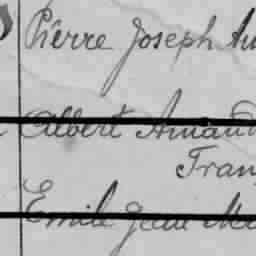 Pierre Joseph Au
Albert Amand
Fran
Emile Jean Ma